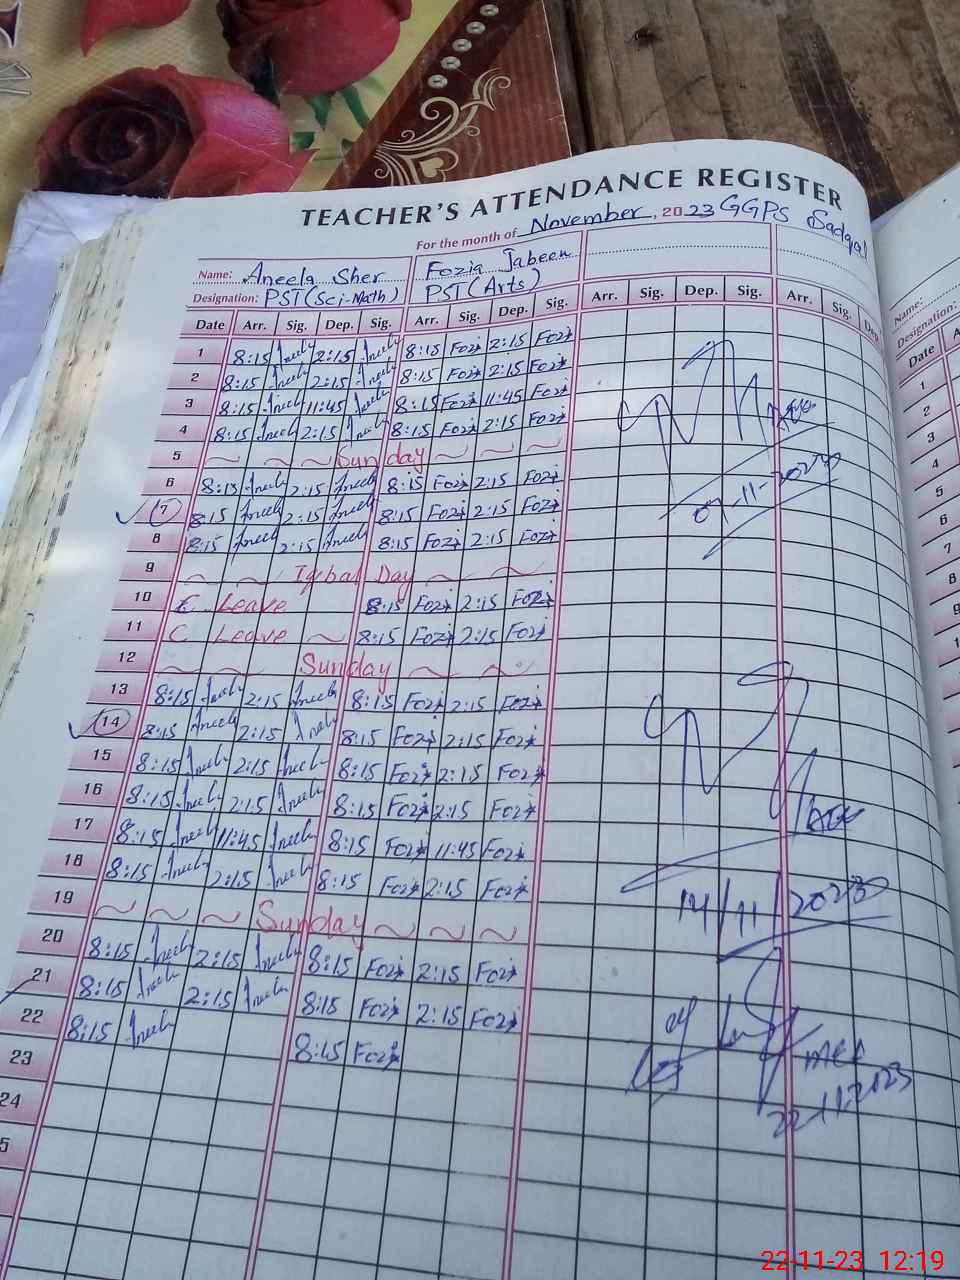 TEACHER'S ATTENDANCE REGISTER
For the month of November, 2023 GGPS Sadqal
Name: Aneela Sher Fozia Jabeen
Designation: PST (Sci-Math) PST (Arts)
Date Arr. Sig. Dep. Sig. Arr. Sig. Dep. Sig. Arr. Sig. Dep. Sig. Arr. Sig. Dep
1 8:15 Aneela 2:15 Aneela 8:15 Fozi 2:15 Fozi
2 8:15 Aneela 2:15 Aneela 8:15 Fozi 2:15 Fozi
3 8:15 Aneela 11:45 Aneela 8:15 Fozi 11:45 Fozi
4 8:15 Aneela 2:15 Aneela 8:15 Fozi 2:15 Fozi
5 Sunday
6 8:15 Aneela 2:15 Aneela 8:15 Fozi 2:15 Fozi
7 8:15 Aneela 2:15 Aneela 8:15 Fozi 2:15 Fozi
8 8:15 Aneela 2:15 Aneela 8:15 Fozi 2:15 Fozi
9 Iqbal Day
10 C Leave 8:15 Fozi 2:15 Fozi
11 C Leave 8:15 Fozi 2:15 Fozi
12 Sunday
13 8:15 Aneela 2:15 Aneela 8:15 Fozi 2:15 Fozi
14 8:15 Aneela 2:15 Aneela 8:15 Fozi 2:15 Fozi
15 8:15 Aneela 2:15 Aneela 8:15 Fozi 2:15 Fozi
16 8:15 Aneela 2:15 Aneela 8:15 Fozi 2:15 Fozi
17 8:15 Aneela 11:45 Aneela 8:15 Fozi 11:45 Fozi
18 8:15 Aneela 2:15 Aneela 8:15 Fozi 2:15 Fozi
14/11/2023
19 Sunday
20 8:15 Aneela 2:15 Aneela 8:15 Fozi 2:15 Fozi
21 8:15 Aneela 2:15 Aneela 8:15 Fozi 2:15 Fozi
22 8:15 Aneela 8:15 Fozi
23
22-11-2023
24
5
Name:
Designation:
Date A
1
2
3
4
5
6
7
8
9
22-11-23 12:19